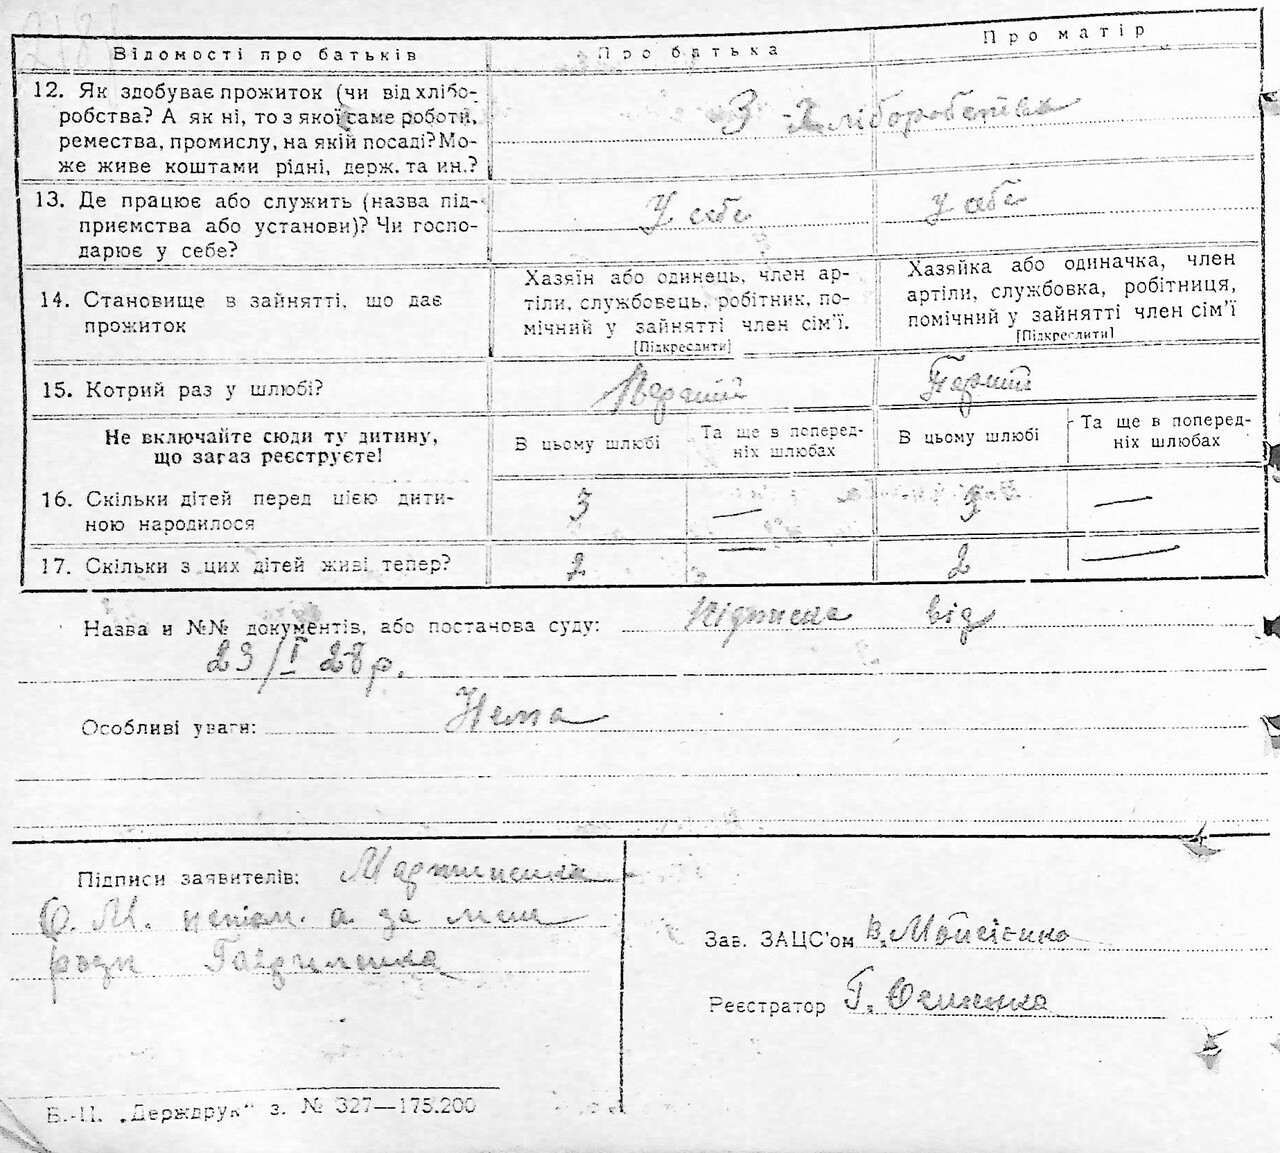 Відомості про батьків
Про батька
Про матір
12. Як здобуває прожиток (чи від хлібо-
робства? А як ні, то з якої саме роботи,
ремества, промислу, на якій посаді? Мо-
же живе коштами рідні, держ. та ин.?
З хліборобства
13. Де працює або служить (назва під-
приємства або установи)? Чи госпо-
дарює у себе?
У себе
У себе
14. Становище в зайнятті, що дає
прожиток
Хазяїн або одинець, член ар-
тіли, службовець, робітник, по-
мічний у зайнятті член сім'ї.
[Підкреслити]
Хазяйка або одиначка, член
артіли, службовка, робітниця,
помічний у зайнятті член сім'ї
[Підкреслити]
15. Котрий раз у шлюбі?
Перший
Перший
Не включайте сюди ту дитину,
що зараз реєструєте!
В цьому шлюбі
Та ще в поперед-
ніх шлюбах
В цьому шлюбі
Та ще в поперед-
ніх шлюбах
16. Скільки дітей перед цією дити-
ною народилося
3
—
3
—
17. Скільки з цих дітей живі тепер?
2
—
2
—
Назва й №№ документів, або постанова суду: Підписка від
23/I 28 р.
Особливі уваги: Нема
Підписи заявителів: Мартиненка
О. М. непісм. а за
Гавриленка
Зав. ЗАЦС'ом В. Мойсієнко
Реєстратор Г. Осипенко
Б.-Ц. „Держдрук" з. № 327—175.200